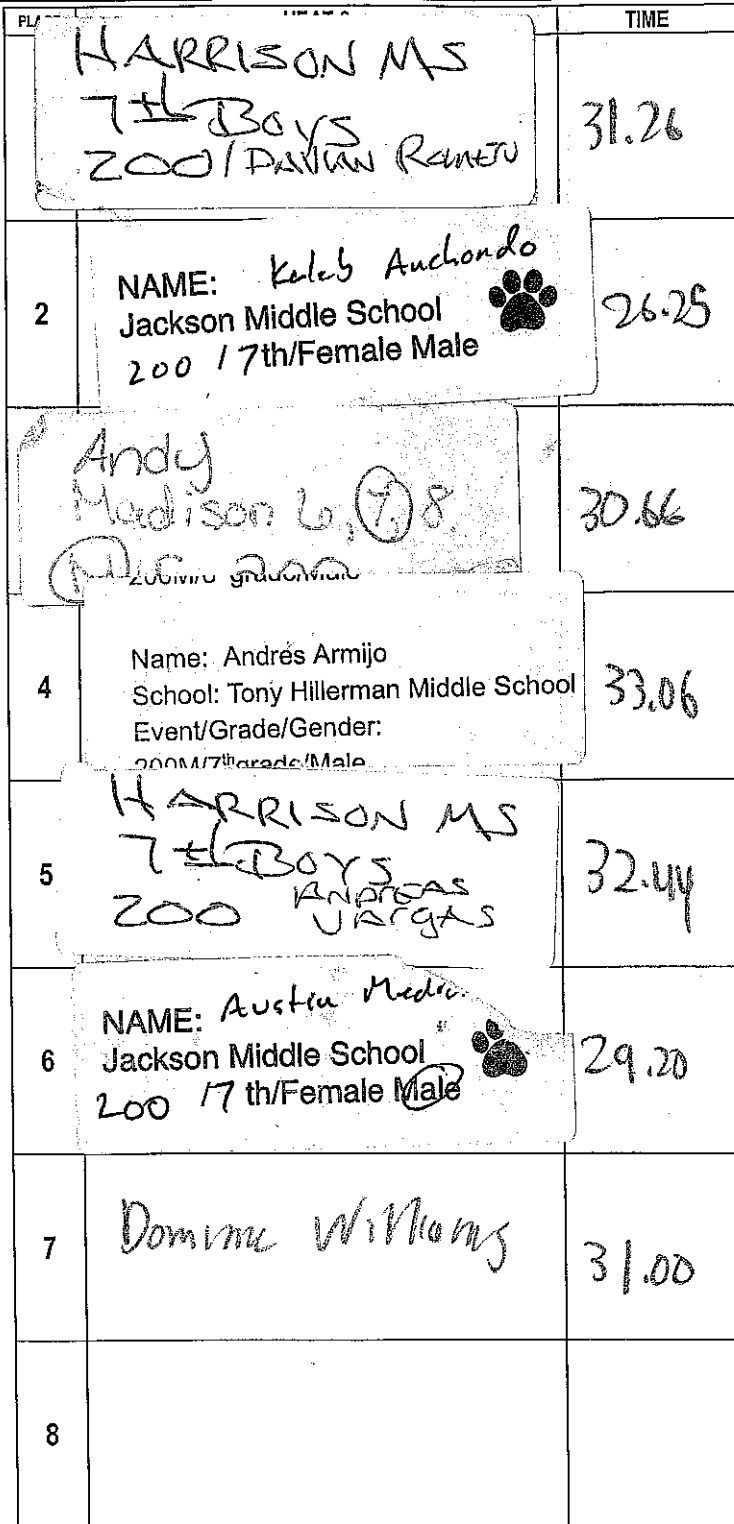 TIME
HARRISON MS
7th BOYS
200 / DAVIAN
31.26
2
NAME: Kaleb Auchondo
Jackson Middle School
200 / 7th/Female Male
26.25
Andy
Madison 6, 7, 8
M 200
30.66
4
Name: Andrés Armijo
School: Tony Hillerman Middle School
Event/Grade/Gender:
200M/7thgrade/Male
33.06
HARRISON MS
7th BOYS
5
200 ANDREAS
VARGAS
32.44
NAME: Austin
6
Jackson Middle School
200 /7 th/Female Male
29.20
7
Dominic Williams
31.00
8